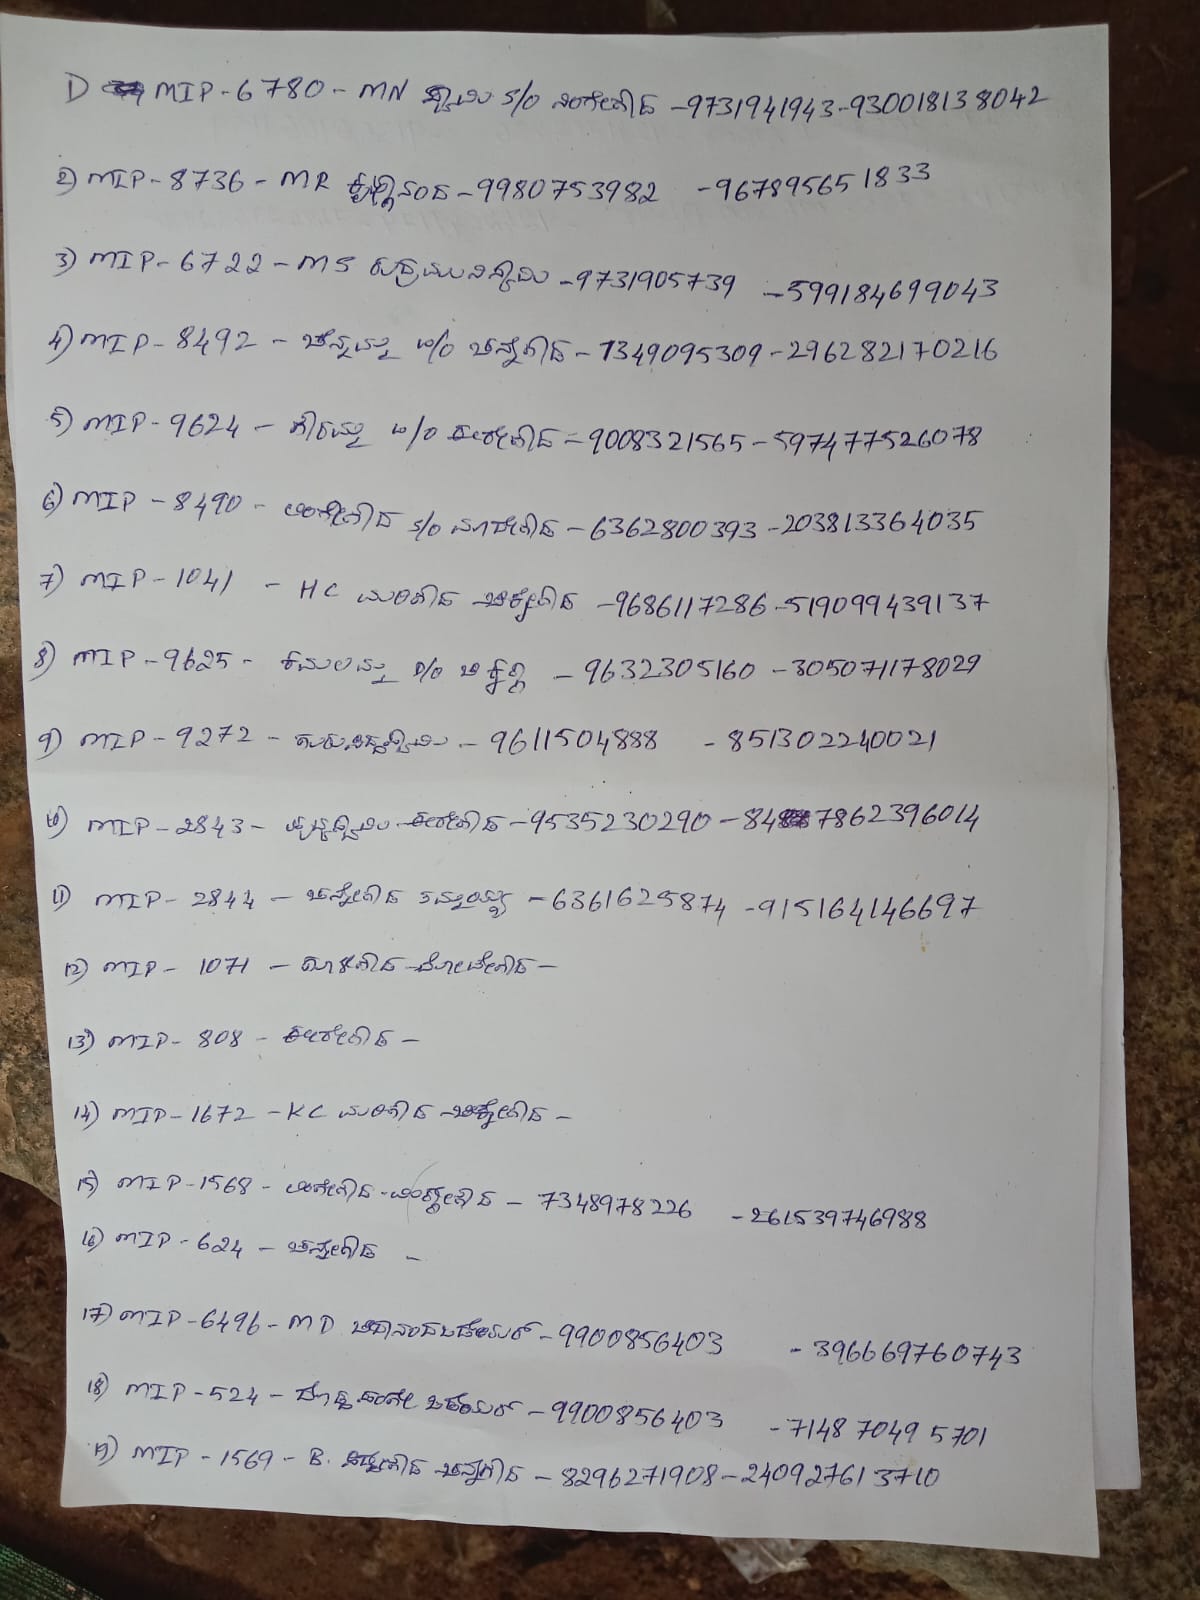 1) MIP-6780 - MN ಸ್ವಾಮಿ S/O ನಂಜೇಗೌಡ - 9731941943-930018138042
2) MIP-8736 - MR ಕೃಷ್ಣಾನಂದ - 9980753982 - 967895651833
3) MIP-6722 - MS - 9731905739 - 599184699043
4) MIP-8492 - ಚನ್ನಮ್ಮ w/o ಚನ್ನೇಗೌಡ - 7349095309 - 296282170216
5) MIP-9624 - ಗೌರಮ್ಮ w/o ಕರೀಗೌಡ - 9008321565 - 597477526078
6) MIP-8490 - S/O ಮಾದೇಗೌಡ - 6362800393 - 203813364035
7) MIP-1041 - HC ಮರಿಗೌಡ ಚಿಕ್ಕೇಗೌಡ - 9686117286 - 519099439137
8) MIP-9625 - ಕಮಲಮ್ಮ - 9632305160 - 305071178029
9) MIP-9272 - 9611504888 - 851302240021
10) MIP-2843 - ಕರೀಗೌಡ - 9535230290 - 847862396014
11) MIP-2844 - ಚನ್ನೇಗೌಡ ತಮ್ಮಯ್ಯ - 6361625874 - 915164146697
12) MIP-1071 -
13) MIP-808 - ಕರೀಗೌಡ -
14) MIP-1672 - KC ಮರಿಗೌಡ ಚಿಕ್ಕೇಗೌಡ -
15) MIP-1568 - 7348978226 - 261539746988
16) MIP-624 - ಚನ್ನೇಗೌಡ -
17) MIP-6496 - MD - 9900856403 - 396669760743
18) MIP-524 - 9900856403 - 7148 7049 5701
19) MIP-1569 - B. ಚನ್ನೇಗೌಡ - 8296271908 - 240927613710